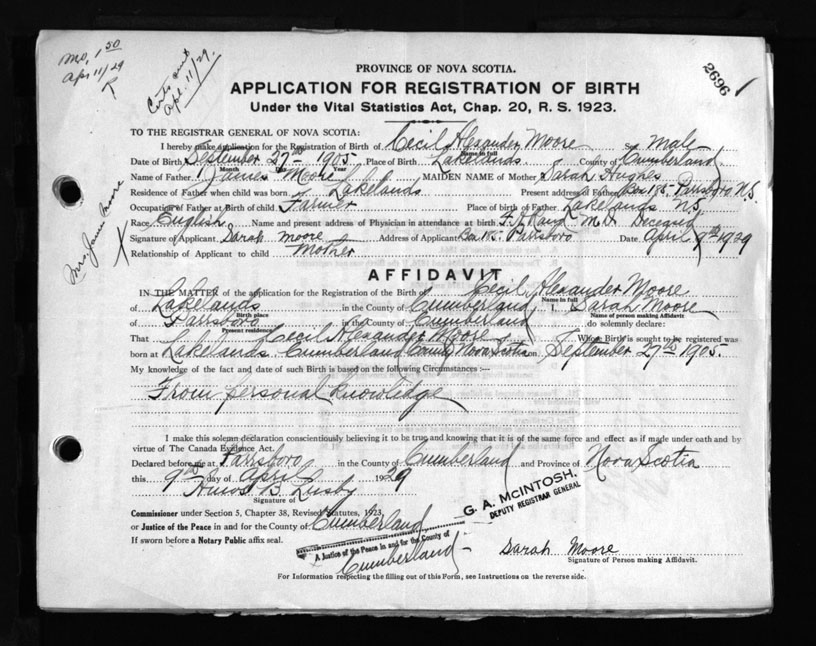 Mo. 1.50
Apr 11/29
Certs sent
Apl. 11/29.
2696
PROVINCE OF NOVA SCOTIA.
APPLICATION FOR REGISTRATION OF BIRTH
Under the Vital Statistics Act, Chap. 20, R. S. 1923.
TO THE REGISTRAR GENERAL OF NOVA SCOTIA:
I hereby make application for the Registration of Birth of Cecil Alexander Moore Sex Male
Name in full
Date of Birth September 27th 1905 Place of Birth Lakelands County of Cumberland
Month Day Year
Name of Father James Moore MAIDEN NAME of Mother Sarah Hughes
Residence of Father when child was born Lakelands Present address of Father Box 185 Parrsboro N.S.
Occupation of Father at Birth of child Farmer Place of birth of Father Lakelands N.S.
Race English Name and present address of Physician in attendance at birth M.D. Deceased
Signature of Applicant Sarah Moore Address of Applicant Box 185 Parrsboro Date April 9th 1929
Relationship of Applicant to child Mother
Mrs James Moore
AFFIDAVIT
IN THE MATTER of the application for the Registration of the Birth of Cecil Alexander Moore
Name in full
of Lakelands in the County of Cumberland Sarah Moore
Birth place Name of person making Affidavit
of Parrsboro in the County of Cumberland do solemnly declare:
Present residence
That Cecil Alexander Moore Whose Birth is sought to be registered was
born at Lakelands Cumberland County Nova Scotia on September 27th 1905.
My knowledge of the fact and date of such Birth is based on the following Circumstances :—
From personal knowlidge
I make this solemn declaration conscientiously believing it to be true and knowing that it is of the same force and effect as if made under oath and by
virtue of The Canada Evidence Act.
Declared before me at Parrsboro in the County of Cumberland and Province of Nova Scotia
this 9th day of April 1929
Amos B. Lusby
Signature of
G. A. MCINTOSH.
DEPUTY REGISTRAR GENERAL
Commissioner under Section 5, Chapter 38, Revised Statutes, 1923,
or Justice of the Peace in and for the County of Cumberland
If sworn before a Notary Public affix seal.
A Justice of the Peace in and for the County of
Cumberland
Sarah Moore
Signature of Person making Affidavit.
For Information respecting the filling out of this Form, see Instructions on the reverse side.